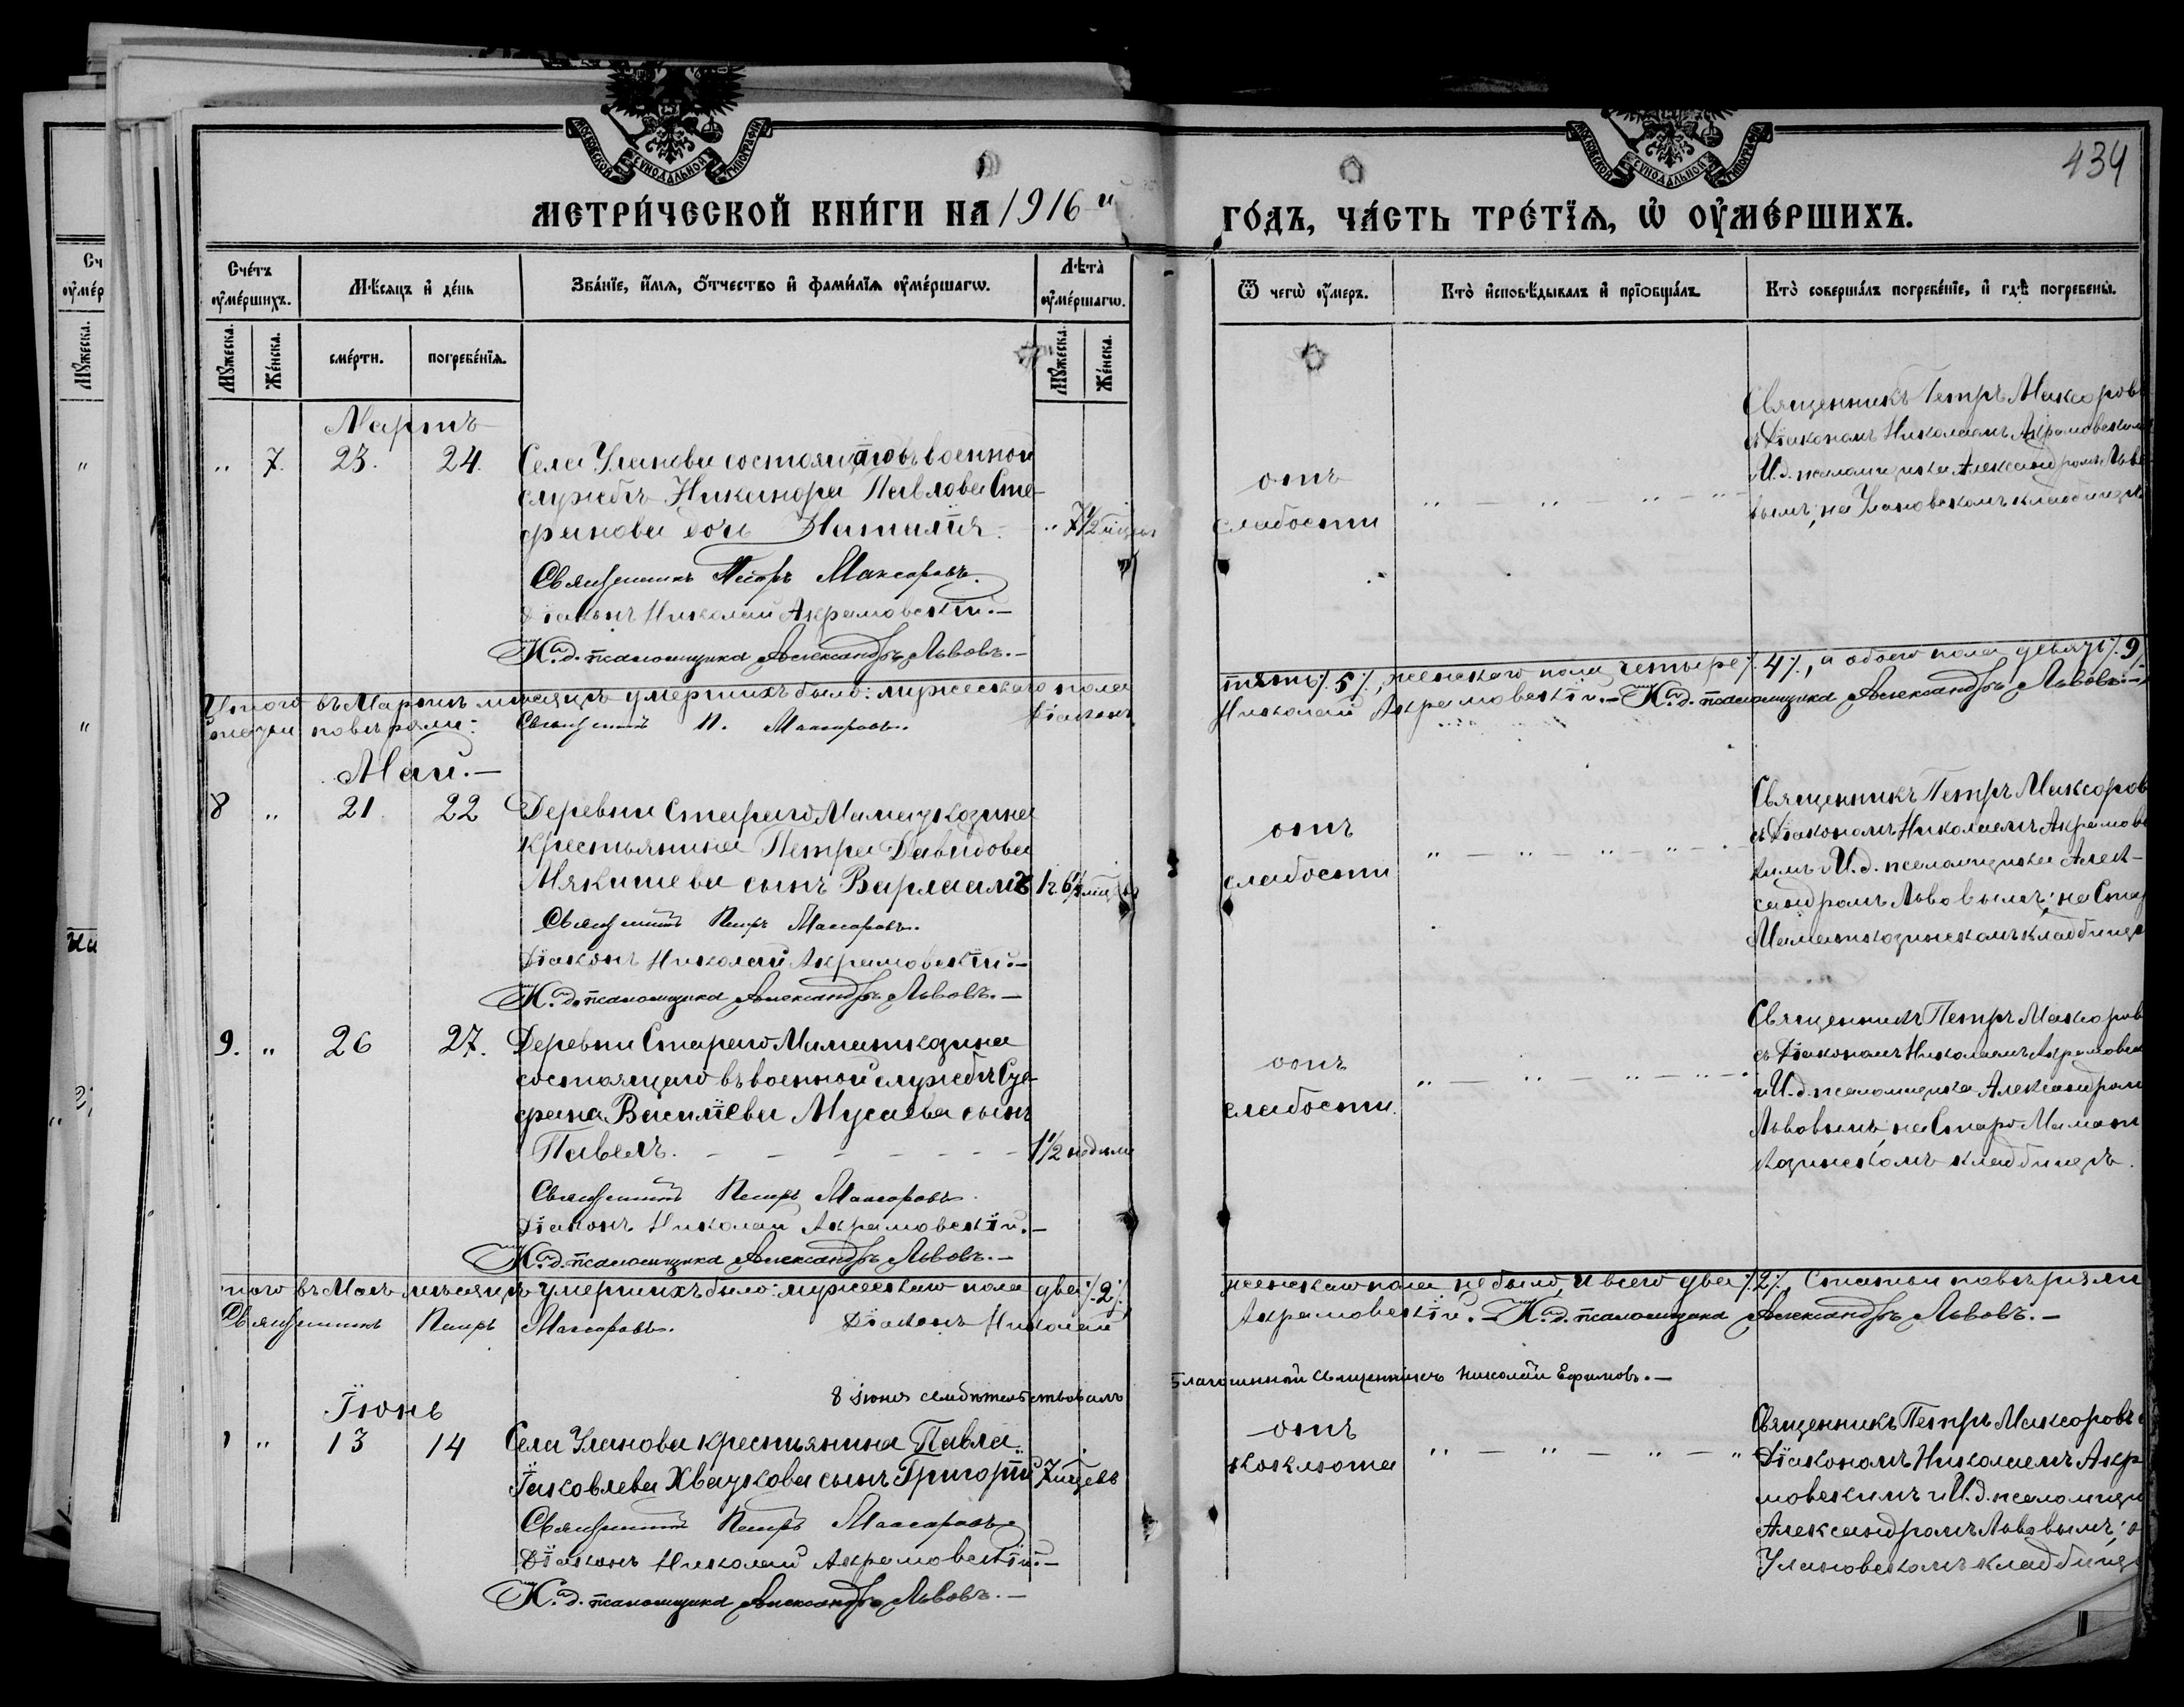 МОСКОВСКОЙ СУНОДАЛЬНОЙ ТИПОГРАФІИ
МОСКОВСКОЙ СУНОДАЛЬНОЙ ТИПОГРАФІИ
434
МЕТРИ́ЧЕСКОЙ КНИ́ГИ НА 1916 й
ГО́ДЪ, ЧА́СТЬ ТРЕ́ТЇѦ, Ѡ҆ ОУ҆МЕ́РШИХЪ.
Сче́тъ оу҆ме́ршихъ.
Мѣ́сяцъ и҆ де́нь
Зва́нїе, и҆́мѧ, ѻ҆́тчество и҆ фами́лїѧ оу҆ме́ршагѡ.
Лѣ́та оу҆ме́ршагѡ.
Ѿ чегѡ̀ оу҆́меръ.
Кто̀ и҆сповѣ́дывалъ и҆ прїѡбща́лъ.
Кто̀ соверша́лъ погребе́нїе, и҆ гдѣ̀ погребены̀.
Мꙋ́жеска.
Же́нска.
сме́рти.
погребе́нїѧ.
Мꙋ́жеска.
Же́нска.
Мартъ
" 7. 23. 24. Села Уланова состоящаго въ военной
службѣ Никанора Павлова Сте-
фанова дочь Наталія.
Священникъ Петръ Максоровъ.
Діаконъ Николай Акрамовскій.—
И. д. псаломщика Александръ Львовъ.—
отъ
слабости
Священникъ Петръ Максоровъ
съ Діакономъ Николаемъ Акрамовским
И. д. псаломщика Александромъ Льво
вымъ; на Улановскомъ кладбищѣ
Итого въ Мартѣ мѣсяцѣ умершихъ было: мужескаго пола
пять ٪ 5 ٪, женскаго пола четыре ٪ 4 ٪, а обоего пола девять ٪ 9 ٪
повѣряли: Священникъ П. Максоровъ. Діаконъ
Николай Акрамовскій.— И. д. псаломщика Александръ Львовъ.—
Май.—
8 " 21. 22 Деревни Стараго Маматкозина
крестьянина Петра Давидова
Мякишева сынъ Варлаамъ
Священникъ Петръ Максоровъ.
Діаконъ Николай Акрамовскій.—
И. д. псаломщика Александръ Львовъ.—
отъ
слабости
Священникъ Петръ Максоров
съ Діакономъ Николаемъ Акрамовс
кимъ и И. д. псаломщика Алек-
сандромъ Львовымъ; на Стар
Маматкозинскомъ кладбищѣ
9. " 26 27. Деревни Стараго Маматкозина
состоящаго въ военной службѣ
Василіева Мусаева сынъ
Павелъ. — — — 1 1/2 недѣли
Священникъ Петръ Максоровъ
Діаконъ Николай Акрамовскій.—
И. д. псаломщика Александръ Львовъ.—
отъ
слабости.
Священникъ Петръ Максоров
съ Діакономъ Николаемъ Акрамовск
и И. д. псаломщика Александром
Львовымъ; на Старо Мамат
козинскомъ кладбищѣ.
того въ Маѣ мѣсяцѣ умершихъ было: мужескаго пола два ٪ 2 ٪
женскаго пола не было, и всего два ٪ 2 ٪, Статьи повѣряли
Священникъ Петръ Максоровъ. Діаконъ Николай
Акрамовскій.— И. д. псаломщика Александръ Львовъ.—
8 іюня свидѣтельствовалъ
Благочинный Священникъ Николай Ефимовъ.—
Іюнь
" 13 14 Села Уланова крестьянина Павла
Іаковлева Хваткова сынъ Григорій 7 мцевъ
Священникъ Петръ Максоровъ
Діаконъ Николай Акрамовскій.—
И. д. псаломщика Александръ Львовъ.—
отъ
коклюша
Священникъ Петръ Максоровъ
Діакономъ Николаемъ Акр
мовскимъ и И. д. псаломщи
Александромъ Львовымъ;
Улановскомъ кладбищѣ